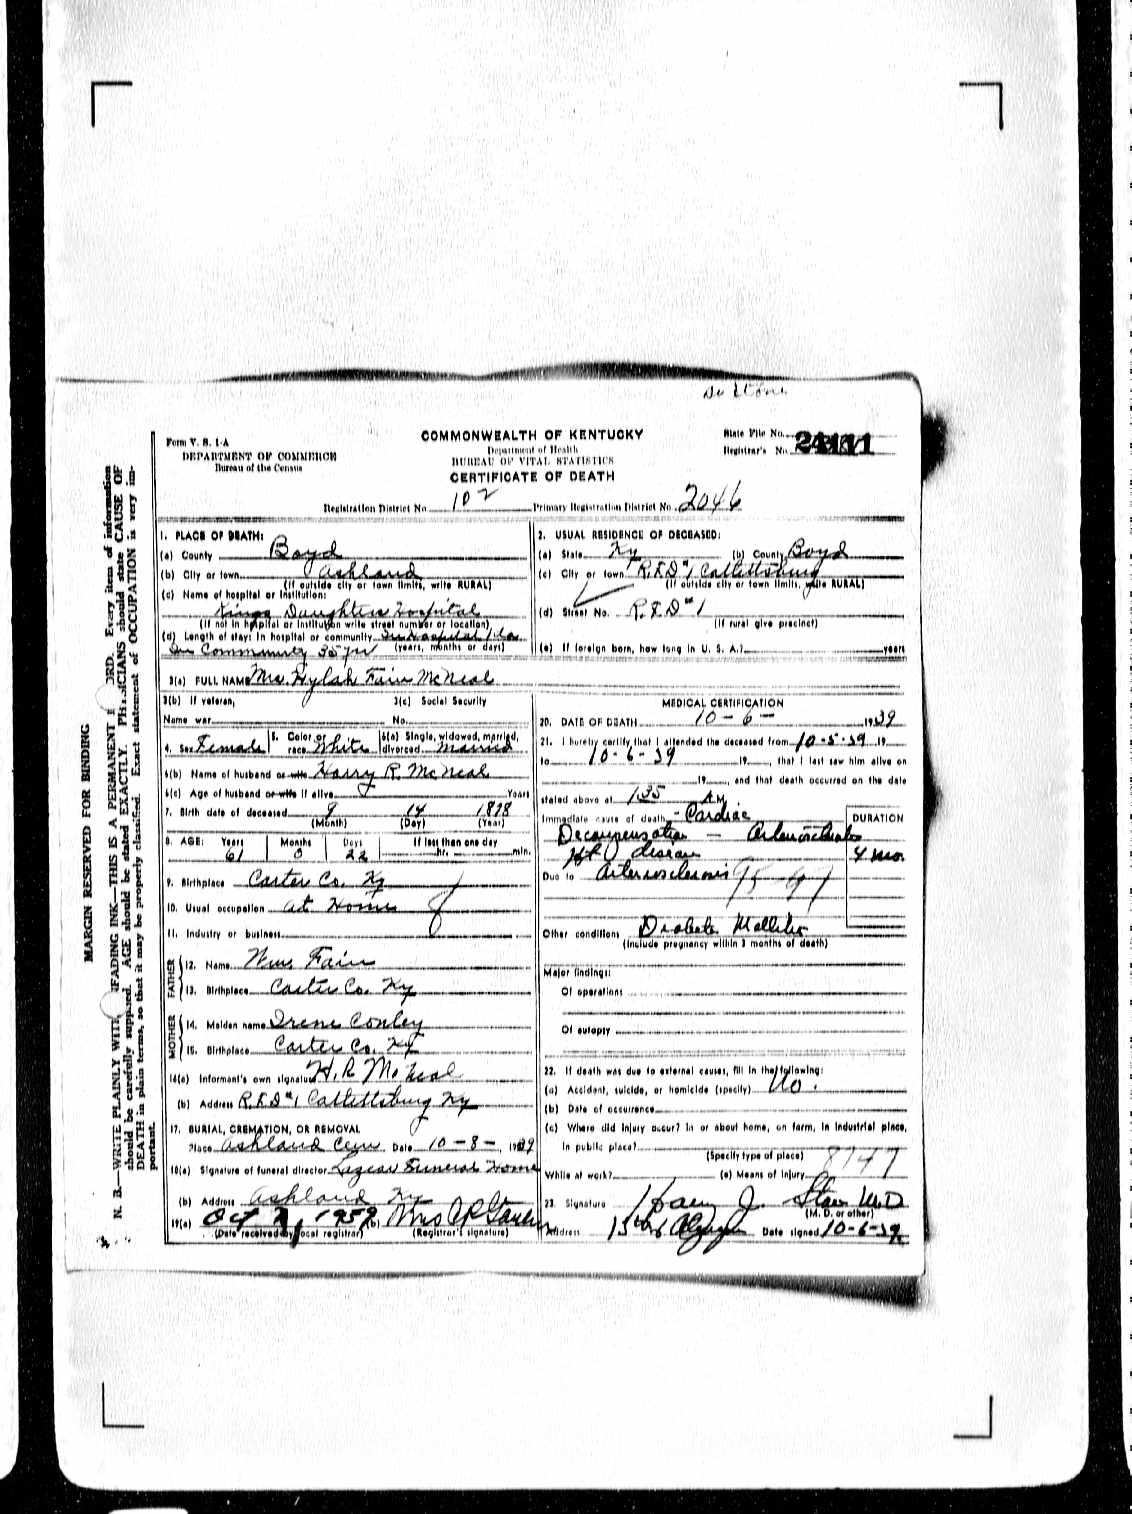 Dr Stone
Form V. S. 1-A
DEPARTMENT OF COMMERCE
Bureau of the Census
COMMONWEALTH OF KENTUCKY
Department of Health
BUREAU OF VITAL STATISTICS
CERTIFICATE OF DEATH
State File No.
Registrar's No. 24111
Registration District No. 102 Primary Registration District No. 2046
1. PLACE OF DEATH:
(a) County Boyd
(b) City or town Ashland
(If outside city or town limits, write RURAL)
(c) Name of hospital or institution:
Kings Daughters Hospital
(If not in hospital or institution write street number or location)
(d) Length of stay: In hospital or community In Hospital 1 da
In Community 35 yr (years, months or days)
2. USUAL RESIDENCE OF DECEASED:
(a) State Ky (b) County Boyd
(c) City or town R.F.D #1 Catlettsburg
(If outside city or town limits, write RURAL)
(d) Street No. R.F.D #1
(If rural give precinct)
(e) If foreign born, how long in U. S. A.? years
3(a) FULL NAME Mrs. Hylah Fain McNeal
3(b) If veteran, 3(c) Social Security
Name war No.
4. Sex Female 5. Color or race White 6(a) Single, widowed, married, divorced Married
6(b) Name of husband or wife Harry R. McNeal
6(c) Age of husband or wife if alive Years
7. Birth date of deceased 9 14 1878
(Month) (Day) (Year)
8. AGE: Years Months Days If less than one day
61 0 22 hr. min.
9. Birthplace Carter Co. Ky
10. Usual occupation at Home
11. Industry or business
FATHER
12. Name Wm. Fain
13. Birthplace Carter Co. Ky
MOTHER
14. Maiden name Irene Conley
15. Birthplace Carter Co. Ky
16(a) Informant's own signature H. R McNeal
(b) Address R.F.D #1 Catlettsburg Ky
17. BURIAL, CREMATION, OR REMOVAL
Place Ashland Cem Date 10-8-, 1939
18(a) Signature of funeral director Lazear Funeral Home
(b) Address Ashland Ky
19(a) (b) Mrs
(Date received by local registrar) (Registrar's signature)
MEDICAL CERTIFICATION
20. DATE OF DEATH 10-6- 1939
21. I hereby certify that I attended the deceased from 10-5-39 19
to 10-6-39 19, that I last saw him alive on
19, and that death occurred on the date
stated above at 135 A M.
Immediate cause of death Cardiac
Decompensation - Arteriosclerotic
Ht disease
DURATION
4 mo.
Due to Arteriosclerosis 95-97
Other conditions Diabetes Mellitus
(include pregnancy within 3 months of death)
Major findings:
Of operations
Of autopsy
22. If death was due to external causes, fill in the following:
(a) Accident, suicide, or homicide (specify) No.
(b) Date of occurrence
(c) Where did injury occur? In or about home, on farm, in industrial place,
In public place?
(Specify type of place)
While at work? (e) Means of injury
23. Signature M.D
(M. D. or other)
Address Date signed 10-6-39
MARGIN RESERVED FOR BINDING
N. B.—WRITE PLAINLY WITH UNFADING INK—THIS IS A PERMANENT RECORD. Every item of information
should be carefully supplied. AGE should be stated EXACTLY. PHYSICIANS should state CAUSE OF
DEATH in plain terms, so that it may be properly classified. Exact statement of OCCUPATION is very im-
portant.